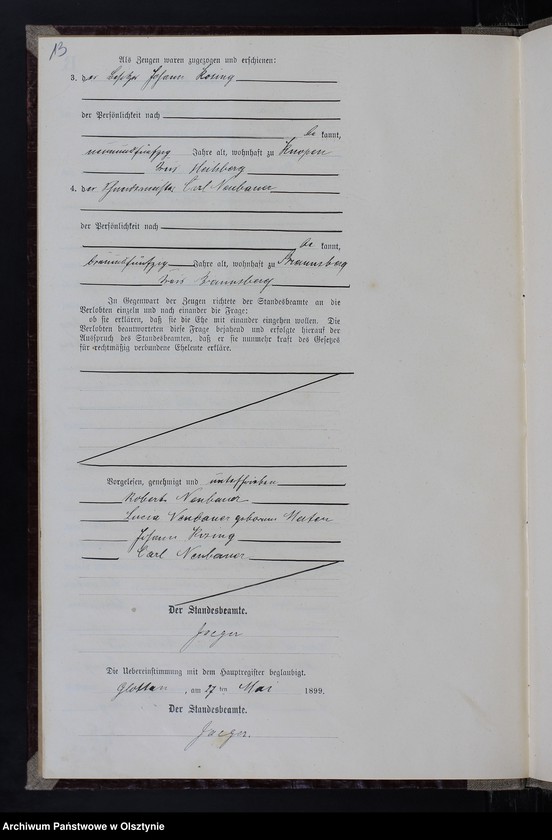 13
Als Zeugen waren zugezogen und erschienen:
3. der Besitzer Johann Krsing
der Persönlichkeit nach
be kannt,
neunundfünfzig Jahre alt, wohnhaft zu Knopen
Kreis Heilsberg
4. der Carl Neubauer
der Persönlichkeit nach
be kannt,
Jahre alt, wohnhaft zu Braunsberg
Kreis Braunsberg
In Gegenwart der Zeugen richtete der Standesbeamte an die
Verlobten einzeln und nach einander die Frage:
ob sie erklären, daß sie die Ehe mit einander eingehen wollen. Die
Verlobten beantworteten diese Frage bejahend und erfolgte hierauf der
Ausspruch des Standesbeamten, daß er sie nunmehr kraft des Gesetzes
für rechtmäßig verbundene Eheleute erkläre.
Vorgelesen, genehmigt und unterschrieben
Robert Neubauer
Lucia Neubauer geborene
Johann
Carl Neubauer
Der Standesbeamte.
Jaeger
Die Uebereinstimmung mit dem Hauptregister beglaubigt.
Glottau, am 27 ten Mai 1899.
Der Standesbeamte.
Jaeger.
Archiwum Państwowe w Olsztynie